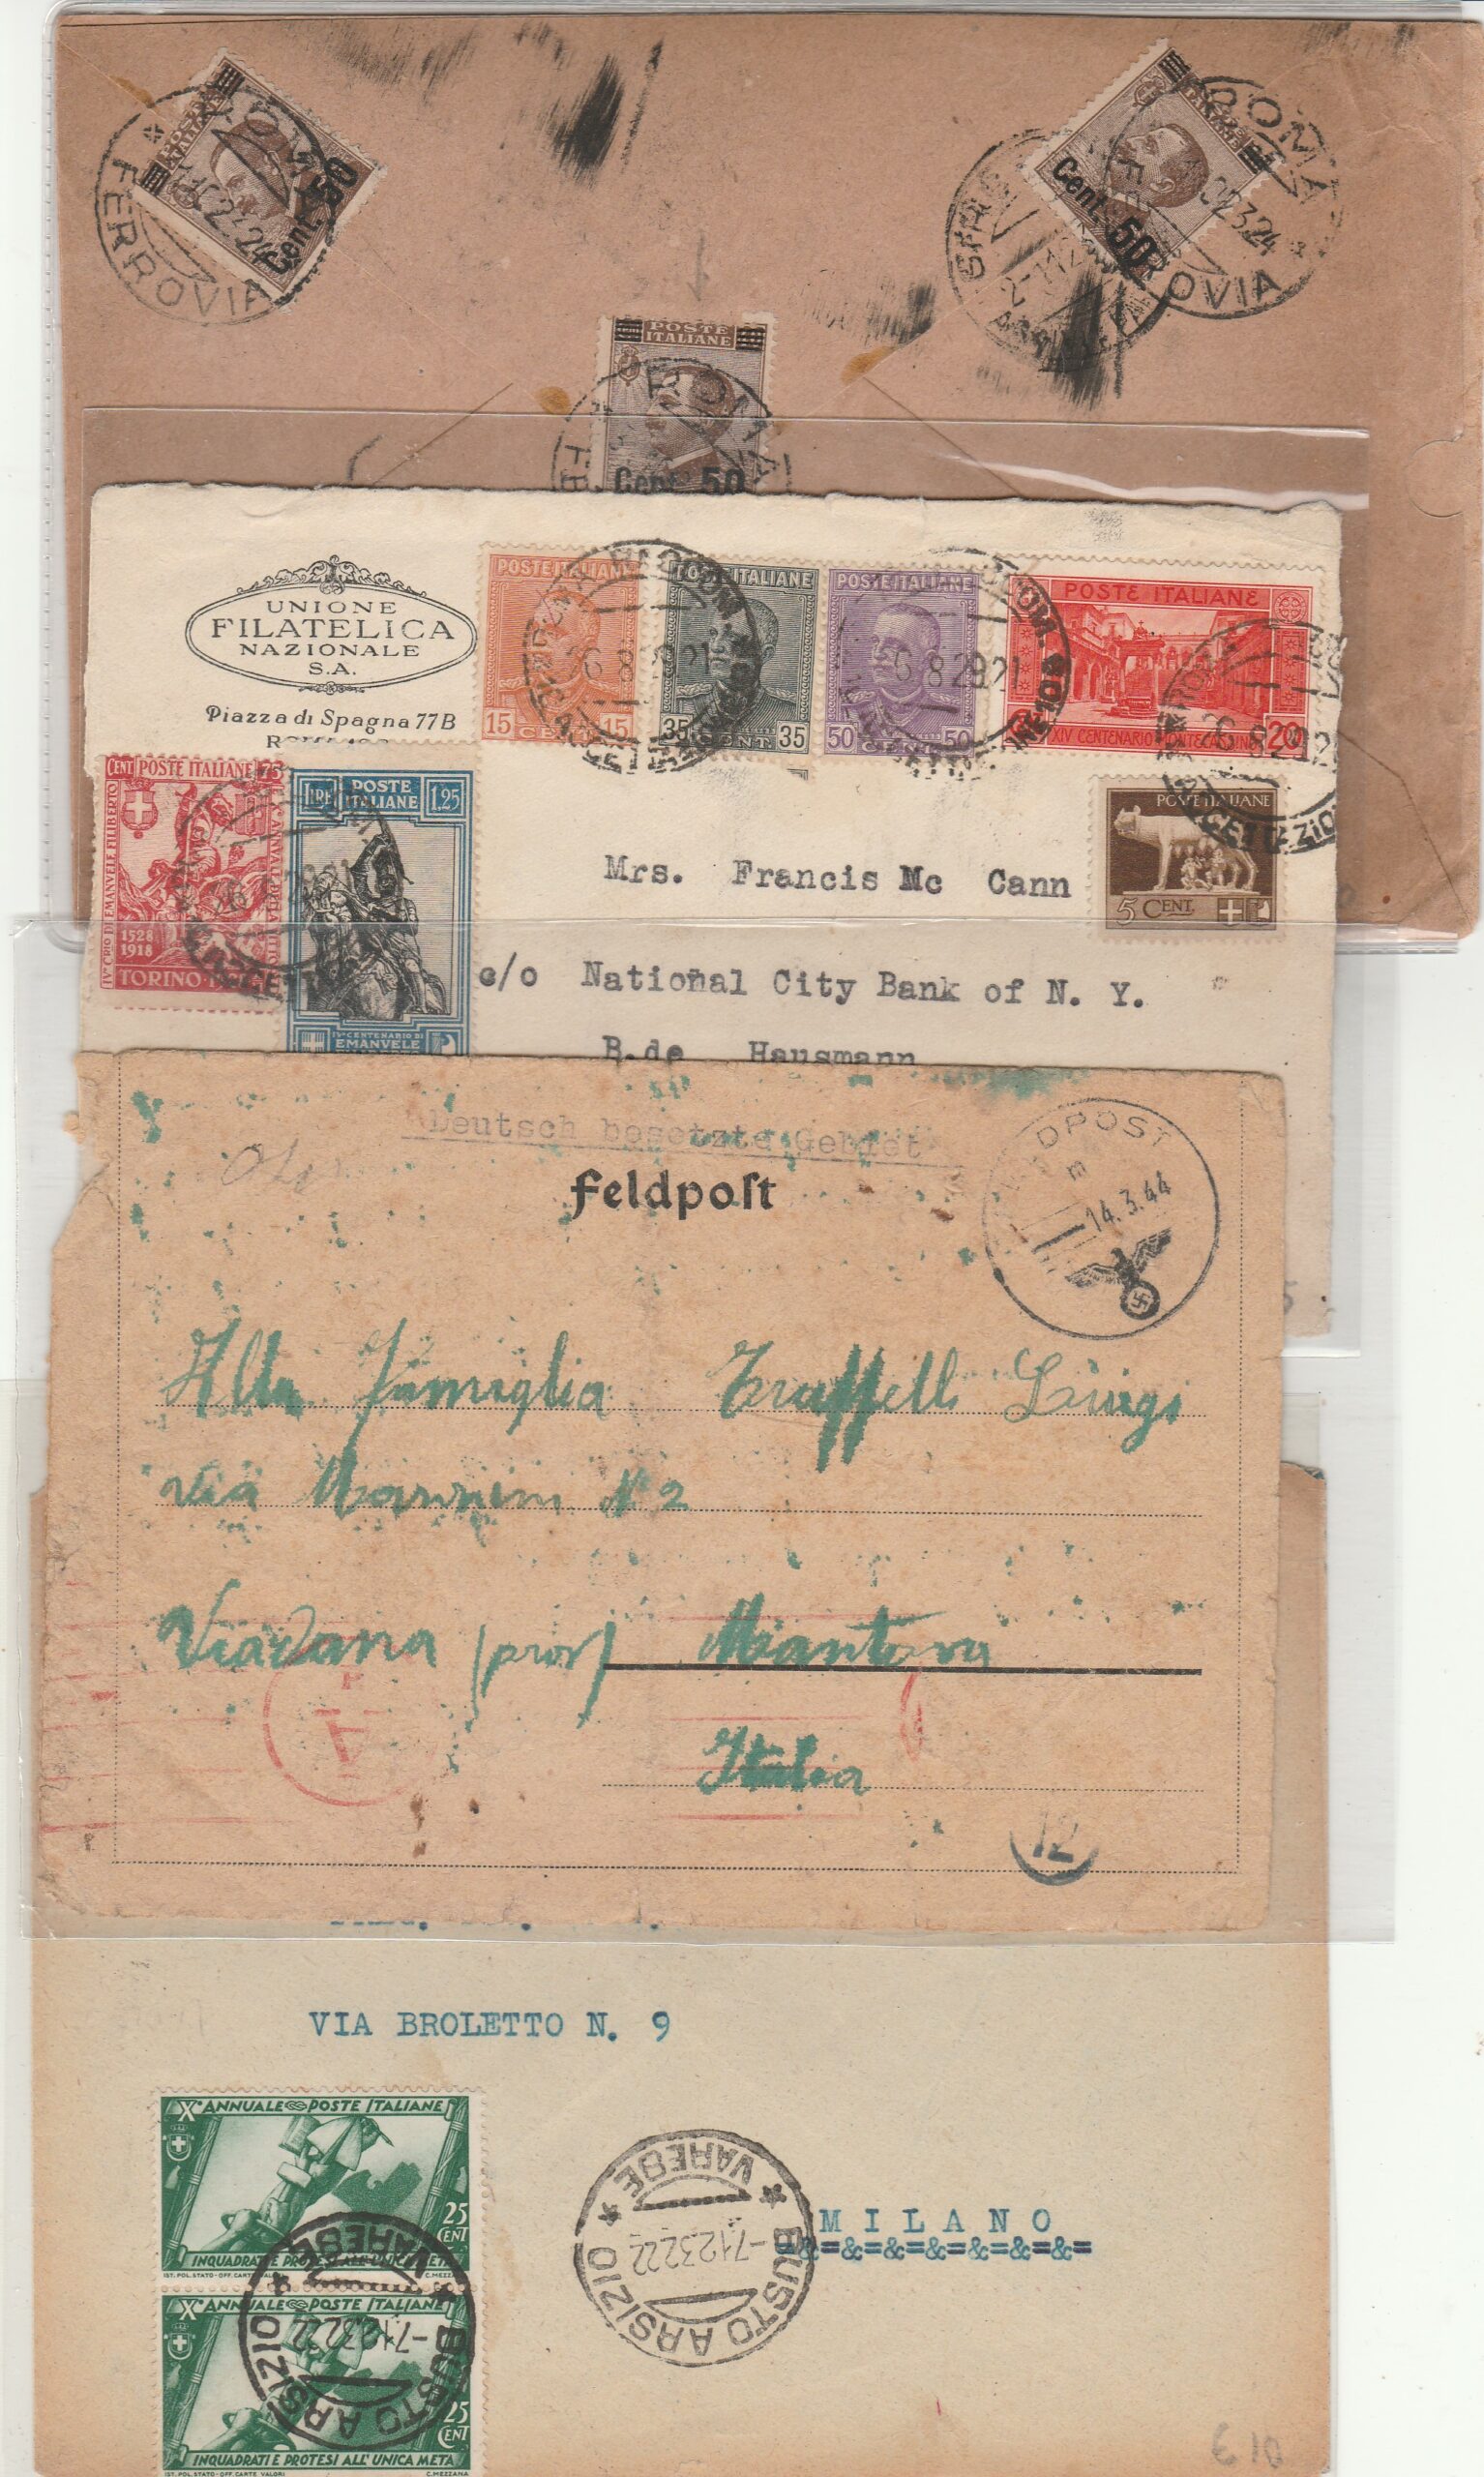 POSTE
ITALIANE
Cent. 50
ROMA
FERROVIA
POSTE
ITALIANE
Cent. 50
ROMA
FERROVIA
POSTE
ITALIANE
Cent. 50
ROMA
UNIONE
FILATELICA
NAZIONALE
S.A.
Piazza di Spagna 77B
POSTE ITALIANE
15 CENT. 15
POSTE ITALIANE
35 CENT. 35
POSTE ITALIANE
50 CENT. 50
POSTE ITALIANE
XIV CENTENARIO MONTECASSINO
20
CENT POSTE ITALIANE 75
IV° CRIO DI EMANVELE FILIBERTO
1528
1918
TORINO
LIRE POSTE ITALIANE 1,25
IV° CENTENARIO DI
EMANVELE
POSTE ITALIANE
5 CENT.
Mrs. Francis Mc Cann
c/o National City Bank of N. Y.
B.de Hausmann
Deutsch besetzte Gebiet
Feldpost
FELDPOST
m
14.3.44
Alla Famiglia Truffelli Luigi
via N° 2
Viadana (prov) Mantova
Italia
12
VIA BROLETTO N. 9
X° ANNUALE POSTE ITALIANE
25
CENT
INQUADRATI E PROTESI ALL'UNICA META
IST. POL. STATO-OFF. CARTE VALORI
C. MEZZANA
X° ANNUALE POSTE ITALIANE
25
CENT
INQUADRATI E PROTESI ALL'UNICA META
IST. POL. STATO-OFF. CARTE VALORI
C. MEZZANA
BUSTO ARSIZIO
VARESE
-7.12.32.22
BUSTO ARSIZIO
VARESE
-7.12.32.22
MILANO
=&=&=&=&=&=&=&=
€ 10